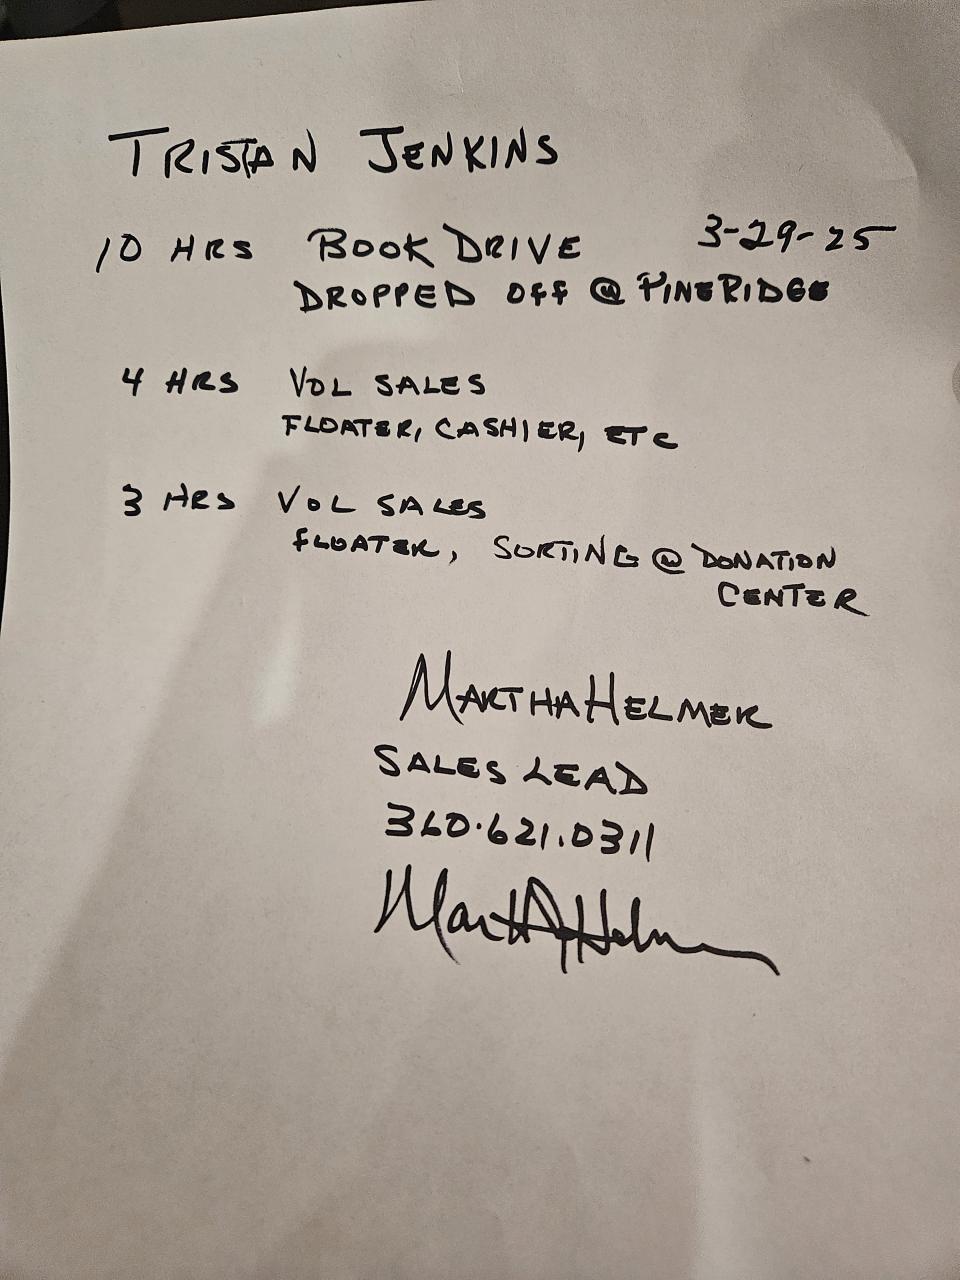 TRISTAN JENKINS
10 HRS BOOK DRIVE 3-29-25
DROPPED OFF @ PINERIDGE
4 HRS VOL SALES
FLOATER, CASHIER, ETC
3 HRS VOL SALES
FLOATER, SORTING @ DONATION
CENTER
MARTHA HELMER
SALES LEAD
360.621.0311
Martha Helmer